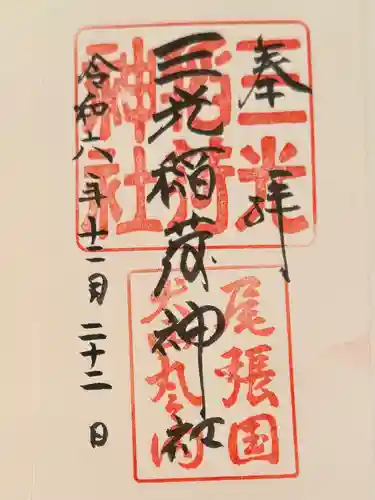 奉拝
三光稲荷神社
令和六年十二月二十二日
三光稲荷神社
尾張国
犬山丸之内